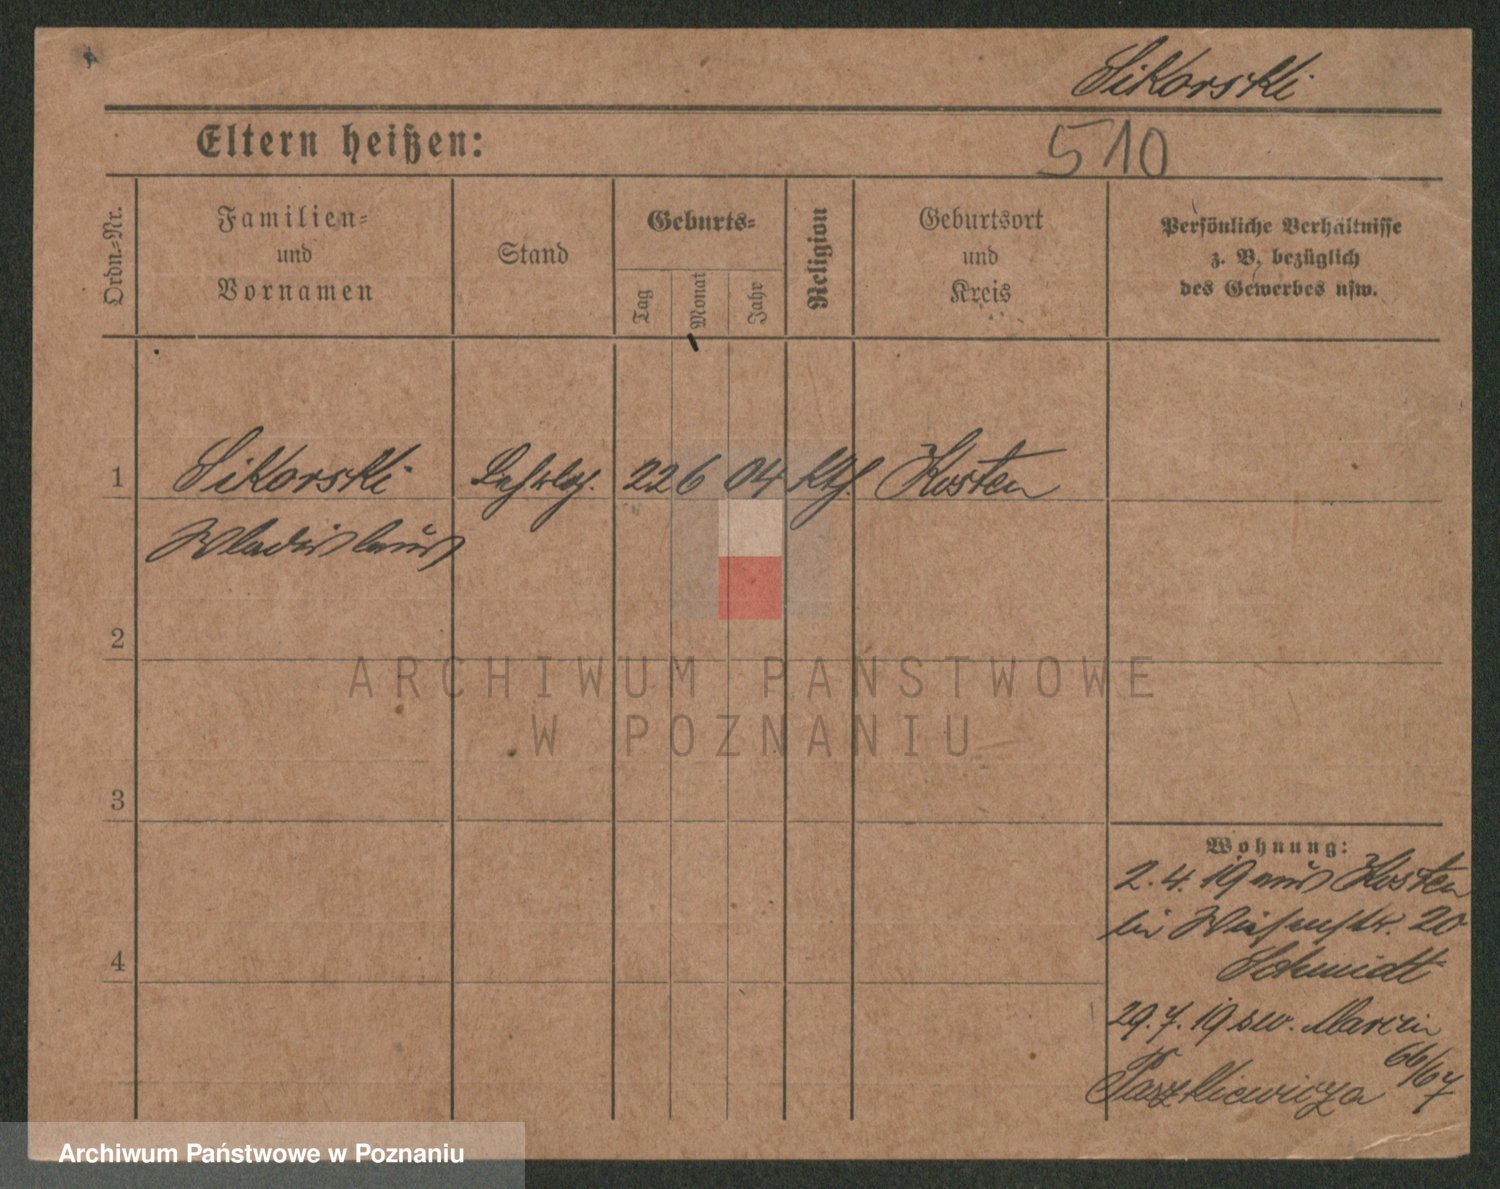 Sikorski
Eltern heißen:
510
Ordn.-Nr.
Familien-
und
Vornamen
Stand
Geburts-
Tag
Monat
Jahr
Religion
Geburtsort
und
Kreis
Persönliche Verhältnisse
z. B. bezüglich
des Gewerbes usw.
1 Sikorski Lehrlg. 22 6 04 kth. Kosten
Wladislaus
2
3
4
Wohnung:
2. 4. 19 aus Kosten
bei Wiesenstr. 20
Schmidt
29. 7. 19 św. Marcin
66/67
Paszkiewicza
ARCHIWUM PAŃSTWOWE
W POZNANIU
Archiwum Państwowe w Poznaniu